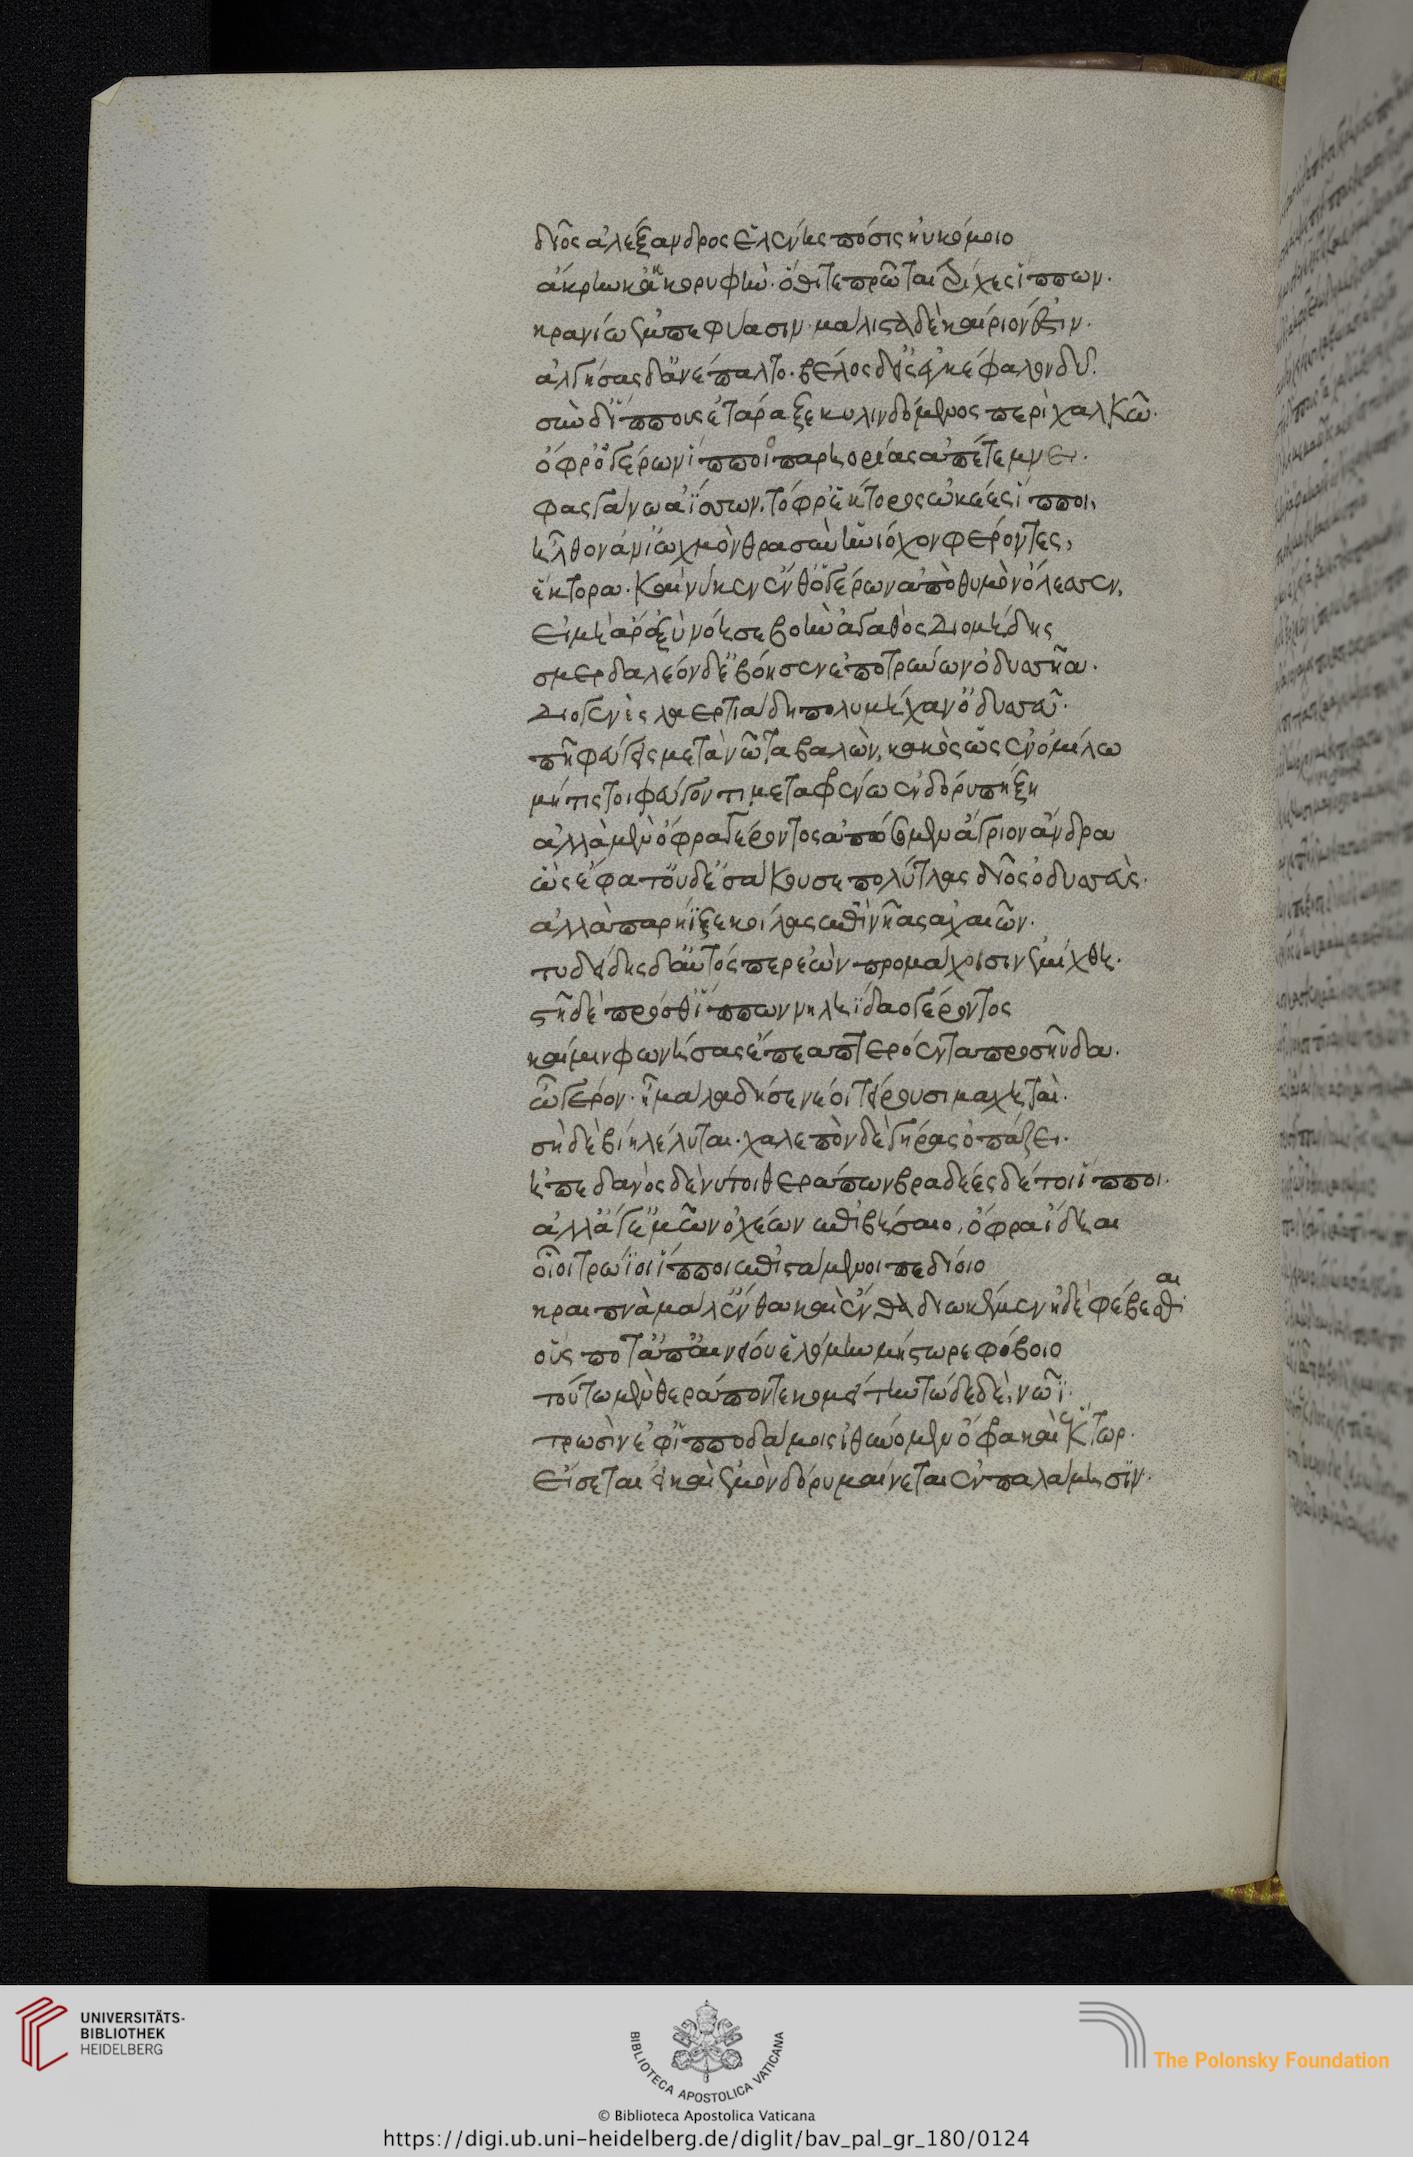 δῖος ἀλέξανδρος ἑλένης πόσις ἠυκόμοιο
ἄκρην κακκορυφήν· ὅθι τε πρῶται τρίχες ἵππων·
κρανίω ἐμπεφύασιν· μάλιστα δὲ καίριόν ἐστιν·
ἀλγήσας δ' ἀνέπαλτο· βέλος δ' εἰς ἐγκέφαλον δῦ·
σὺν δ' ἵππους ἐτάραξε κυλινδόμενος περὶ χαλκῶ·
ὄφρ' ὁ γέρων ἵπποιο παρηορίας ἀπέτεμνε·
φασγάνω ἀΐσσων, τόφρ' ἕκτορος ὠκέες ἵπποι,
ἦλθον ἀν' ἰωχμὸν θρασὺν ἡνίοχον φέροντες,
ἕκτορα· καί νύ κεν ἔνθ' ὁ γέρων ἀπὸ θυμὸν ὄλεσσεν,
εἰ μὴ ἄρ' ὀξὺ νόησε βοὴν ἀγαθὸς Διομήδης
σμερδαλέον δ' ἐβόησεν ἐποτρύνων ὀδυσσῆα·
Διογενὲς λαερτιάδη πολυμήχαν' ὀδυσσεῦ·
πῆ φεύγεις μετὰ νῶτα βαλὼν, κακὸς ὣς ἐν ὁμίλω
μή τίς τοι φεύγοντι μεταφρένω ἐν δόρυ πήξη
ἀλλὰ μέν' ὄφρα γέροντος ἀπώσομεν ἄγριον ἄνδρα
ὣς ἔφατ' οὐδ' ἐσάκουσε πολύτλας δῖος ὀδυσσεὺς·
ἀλλὰ παρήϊξε κοίλας ἐπὶ νῆας ἀχαιῶν·
τυδείδης δ' αὐτός περ ἐὼν προμάχοισιν ἐμίχθη·
στῆ δὲ πρόσθ' ἵππων νηληϊάδαο γέροντος
καί μιν φωνήσας ἔπεα πτερόεντα προσηύδα·
ὦ γέρον· ἦ μάλα δή σε νέοι τείρουσι μαχηταὶ·
σὴ δὲ βίη λέλυται· χαλεπὸν δὲ γῆρας ὀπάζει·
ἠπεδανὸς δὲ νύ τοι θεράπων βραδέες δέ τοι ἵπποι·
ἀλλ' ἄγ' ἐμῶν ὀχέων ἐπιβήσαιο, ὄφρα ἴδηαι
οἷοι τρώϊοι ἵπποι ἐπιστάμενοι πεδίοιο
κραιπνὰ μάλ' ἔνθα καὶ ἔνθα διωκέμεν ἠδὲ φέβεσθαι
οὕς ποτ' ἀπ' αἰνείου ἑλόμην μήστωρε φόβοιο
τούτω μὲν θεράποντε κομείτην τώδε δὲ νῶϊ·
τρωσὶν ἐφ' ἱπποδάμοις ἰθύνομεν ὄφρα καὶ ἕκτωρ·
εἴσεται εἰ καὶ ἐμὸν δόρυ μαίνεται ἐν παλάμησιν·
UNIVERSITÄTS-
BIBLIOTHEK
HEIDELBERG
BIBLIOTECA APOSTOLICA VATICANA
© Biblioteca Apostolica Vaticana
The Polonsky Foundation
https://digi.ub.uni-heidelberg.de/diglit/bav_pal_gr_180/0124